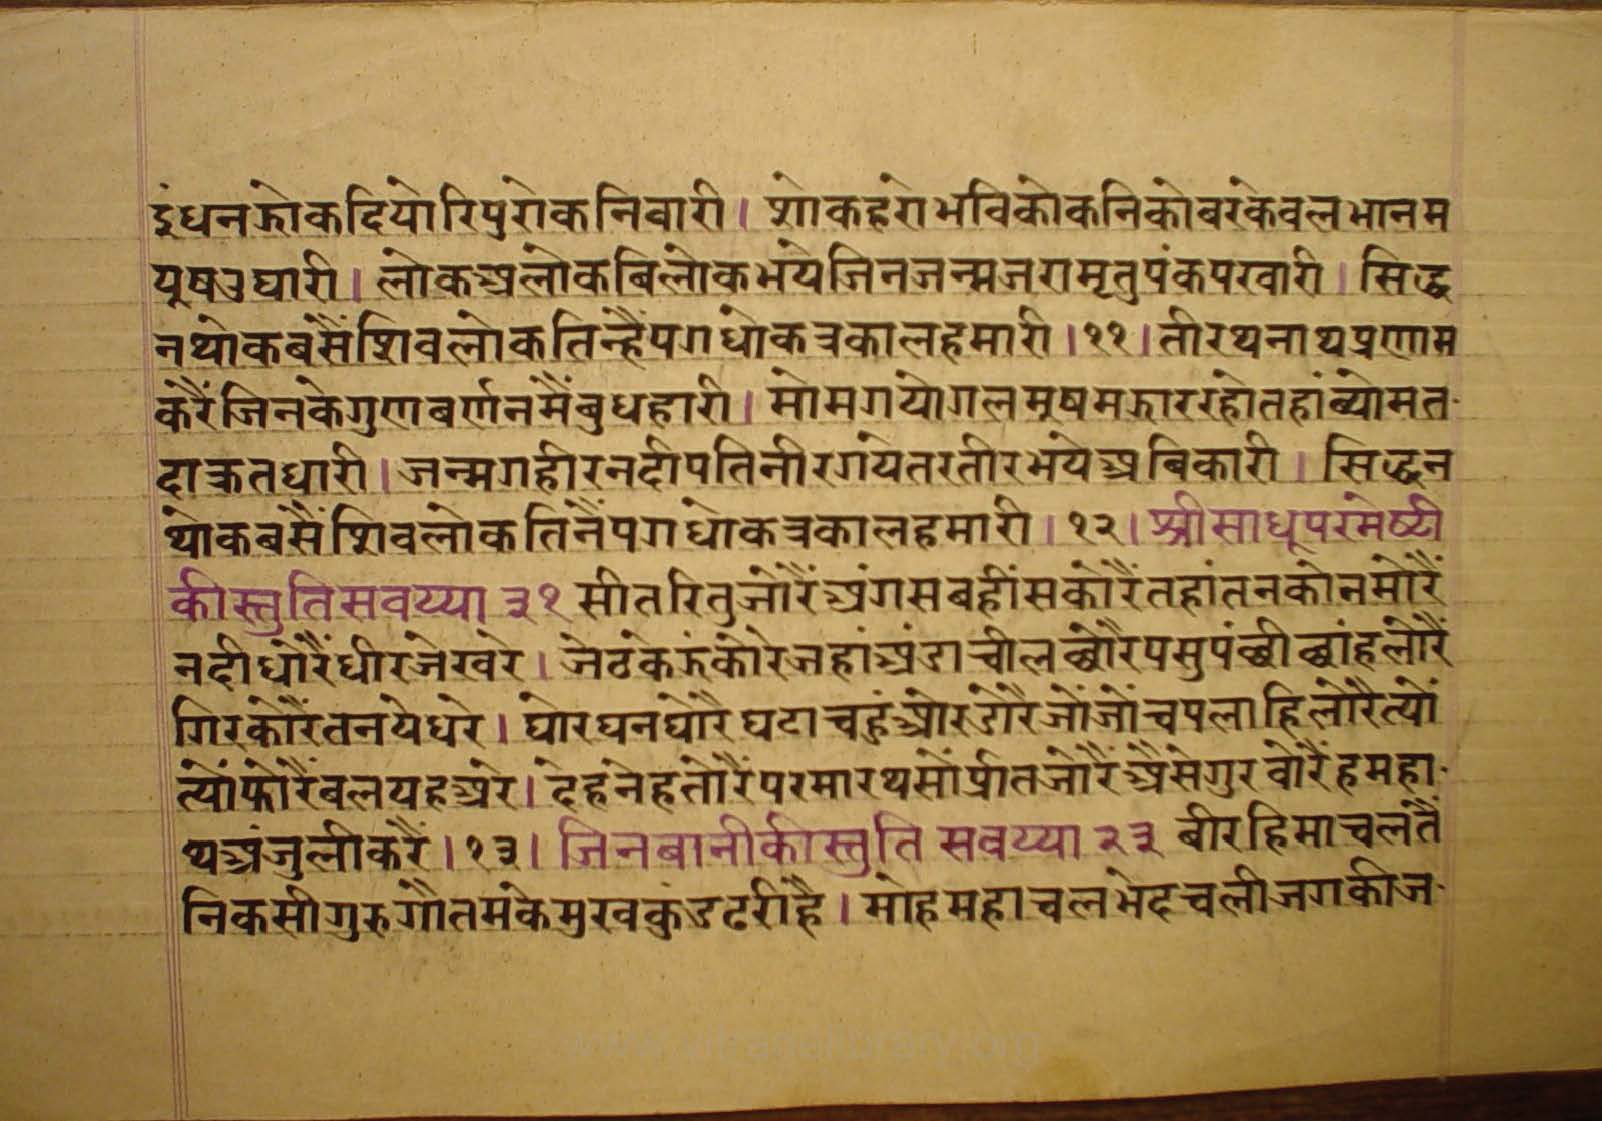 इंधनझोकदियोरिपुरोकनिवारी। शोकहरोभविकोकनिकोबरकेवलभानम
यूषउघारी। लोकअलोकबिलोकभयेजिनजन्मजरामृतुपंकपखारी। सिद्ध
नथोकबसैंशिवलोकतिन्हैंपगधोकत्रकालहमारी।११। तीरथनाथप्रणाम
करैंजिनकेगुणबर्णनमैंबुधहारी। मोमगयोगलमूषमझाररहोतहांव्योमत
दाक्रतधारी। जन्मगहीरनदीपतिनीरगयेतरतीरभयेअबिकारी। सिद्धन
थोकबसैंशिवलोकतिनैंपगधोकत्रकालहमारी। १२। श्रीसाधूपरमेष्टी
कीस्तुतिसवय्या ३१ सीतरितुजोरैंअंगसबहींसकोरैंतहांतनकोनमोरैं
नदीधोरैंधीरजेखरे। जेठकेझंकोरेजहांअंडाचीलछोरैपसुपंछीछांहलोरैं
गिरकोरैंतनयेधरे। घोरघनघोरैघटाचहुंओरडोरैजोंजोंचपलाहिलोरैत्यों
त्योंफोरैंबलयहअरे। देहनेहतोरैंपरमारथसोंप्रीतजोरैंअैसेगुरवोरैंहमहा
थअंजुलीकरैं।१३। जिनबानीकीस्तुति सवय्या २३ बीरहिमाचलतैं
निकसीगुरुगौतमकेमुखकुंडढरीहै। मोहमहाचलभेदचलीजगकीज
www.vitragvani.org